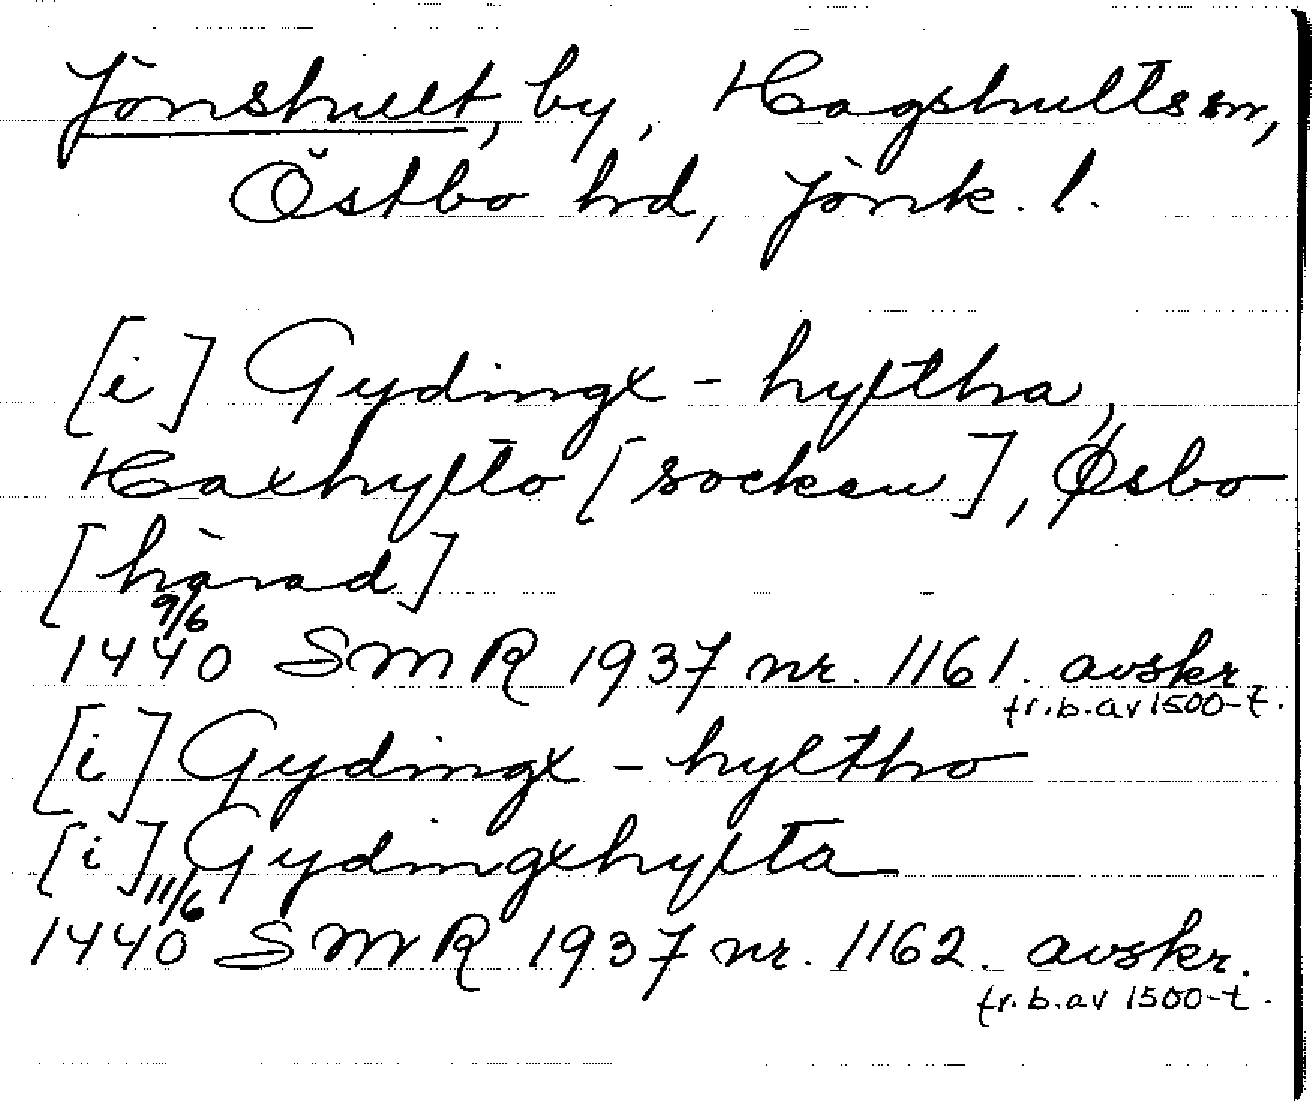 Jönshult, by, Hagshults sn,
Östbo hd, Jönk. l.
[i] Gydingx-hyltha,
Haxhylto [socken], Øsbo
[härad]
9/6
1440 SMR 1937 nr. 1161. avskr.
fr. b. av 1500-t.
[i] Gydingx-hyltho
[i] Gydingxhylta
11/6
1440 SMR 1937 nr. 1162. avskr.
fr. b. av 1500-t.